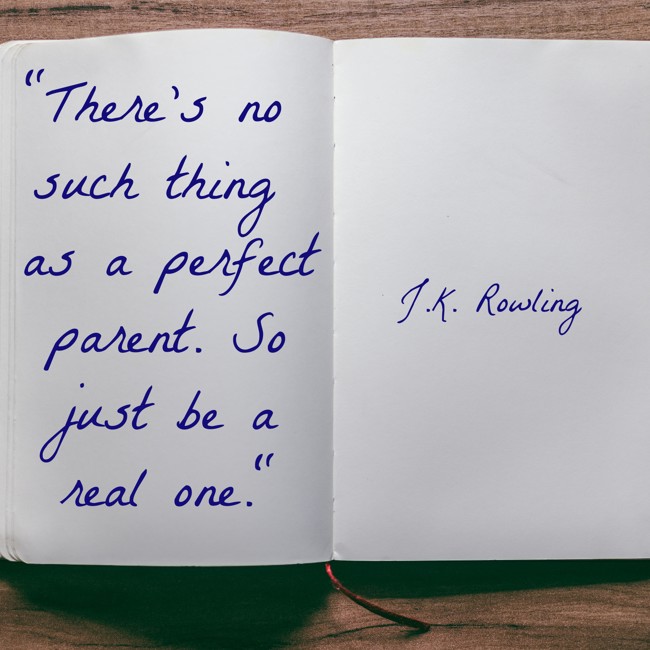 “There's no
such thing
as a perfect
parent. So
just be a
real one.“
J.K. Rowling